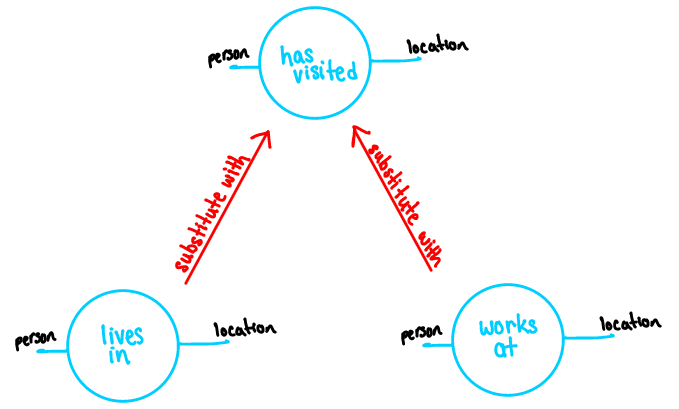 person
has
visited
location
substitute with
substitute with
person
lives
in
location
person
works
at
location